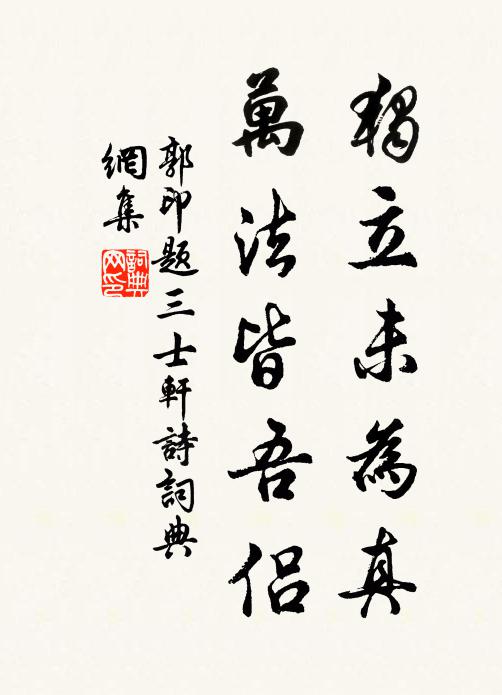 獨立未為真
萬法皆吾侶
郭印題三士軒詩詞典
網集
詞典
网印